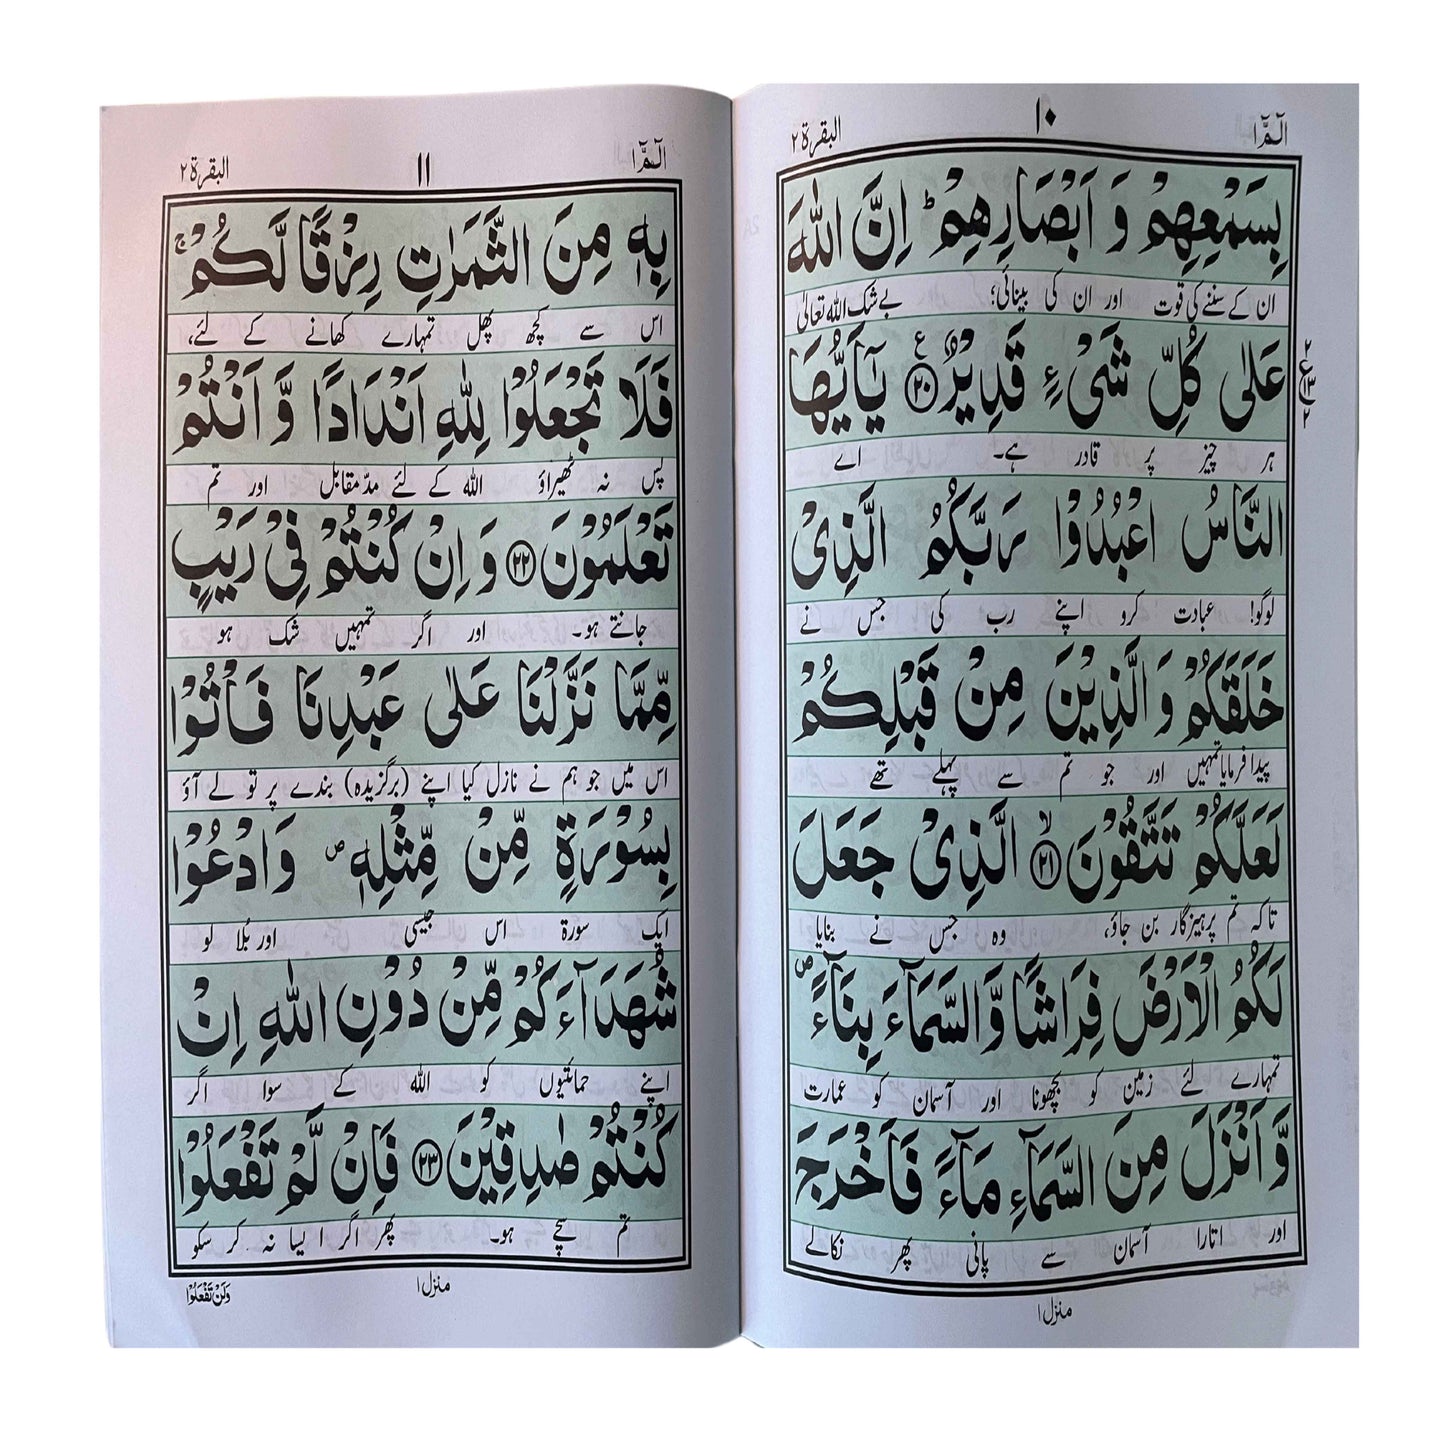 الٓمّٓ ١
١٠
البقرة ٢
بِسَمْعِهِمْ وَ اَبْصَارِهِمْ ؕ اِنَّ اللّٰهَ
ان کے سننے کی قوت اور ان کی بینائی؛ بے شک اللہ تعالٰی
عَلٰى كُلِّ شَیْءٍ قَدِیْرٌ ﴿۲۰﴾ یٰۤاَیُّهَا
ہر چیز پر قادر ہے۔ اے
النَّاسُ اعْبُدُوْا رَبَّكُمُ الَّذِیْ
لوگو! عبادت کرو اپنے رب کی جس نے
خَلَقَكُمْ وَ الَّذِیْنَ مِنْ قَبْلِكُمْ
پیدا فرمایا تمہیں اور جو تم سے پہلے تھے
لَعَلَّكُمْ تَتَّقُوْنَ ﴿۲۱﴾ الَّذِیْ جَعَلَ
تاکہ تم پرہیزگار بن جاؤ، وہ جس نے بنایا
لَكُمُ الْاَرْضَ فِرَاشًا وَّ السَّمَآءَ بِنَآءً ص
تمہارے لئے زمین کو بچھونا اور آسمان کو عمارت
وَّ اَنْزَلَ مِنَ السَّمَآءِ مَآءً فَاَخْرَجَ
اور اتارا آسمان سے پانی پھر نکالے
منزل ١
الٓمّٓ ١
١١
البقرة ٢
بِهٖ مِنَ الثَّمَرٰتِ رِزْقًا لَّكُمْ ۚ
اس سے کچھ پھل تمہارے کھانے کے لئے،
فَلَا تَجْعَلُوْا لِلّٰهِ اَنْدَادًا وَّ اَنْتُمْ
پس نہ ٹھیراؤ اللہ کے لئے مدّ مقابل اور تم
تَعْلَمُوْنَ ﴿۲۲﴾ وَ اِنْ كُنْتُمْ فِیْ رَیْبٍ
جانتے ہو۔ اور اگر تمہیں شک ہو
مِّمَّا نَزَّلْنَا عَلٰى عَبْدِنَا فَاْتُوْا
اس میں جو ہم نے نازل کیا اپنے (برگزیدہ) بندے پر تو لے آؤ
بِسُوْرَةٍ مِّنْ مِّثْلِهٖ ص وَ ادْعُوْا
ایک سورۃ اس جیسی اور بُلا لو
شُهَدَآءَكُمْ مِّنْ دُوْنِ اللّٰهِ اِنْ
اپنے حمائتیوں کو اللہ کے سوا اگر
كُنْتُمْ صٰدِقِیْنَ ﴿۲۳﴾ فَاِنْ لَّمْ تَفْعَلُوْا
تم سچے ہو۔ پھر اگر ایسا نہ کر سکو
منزل ١
وَلَنْ تَفْعَلُوْا